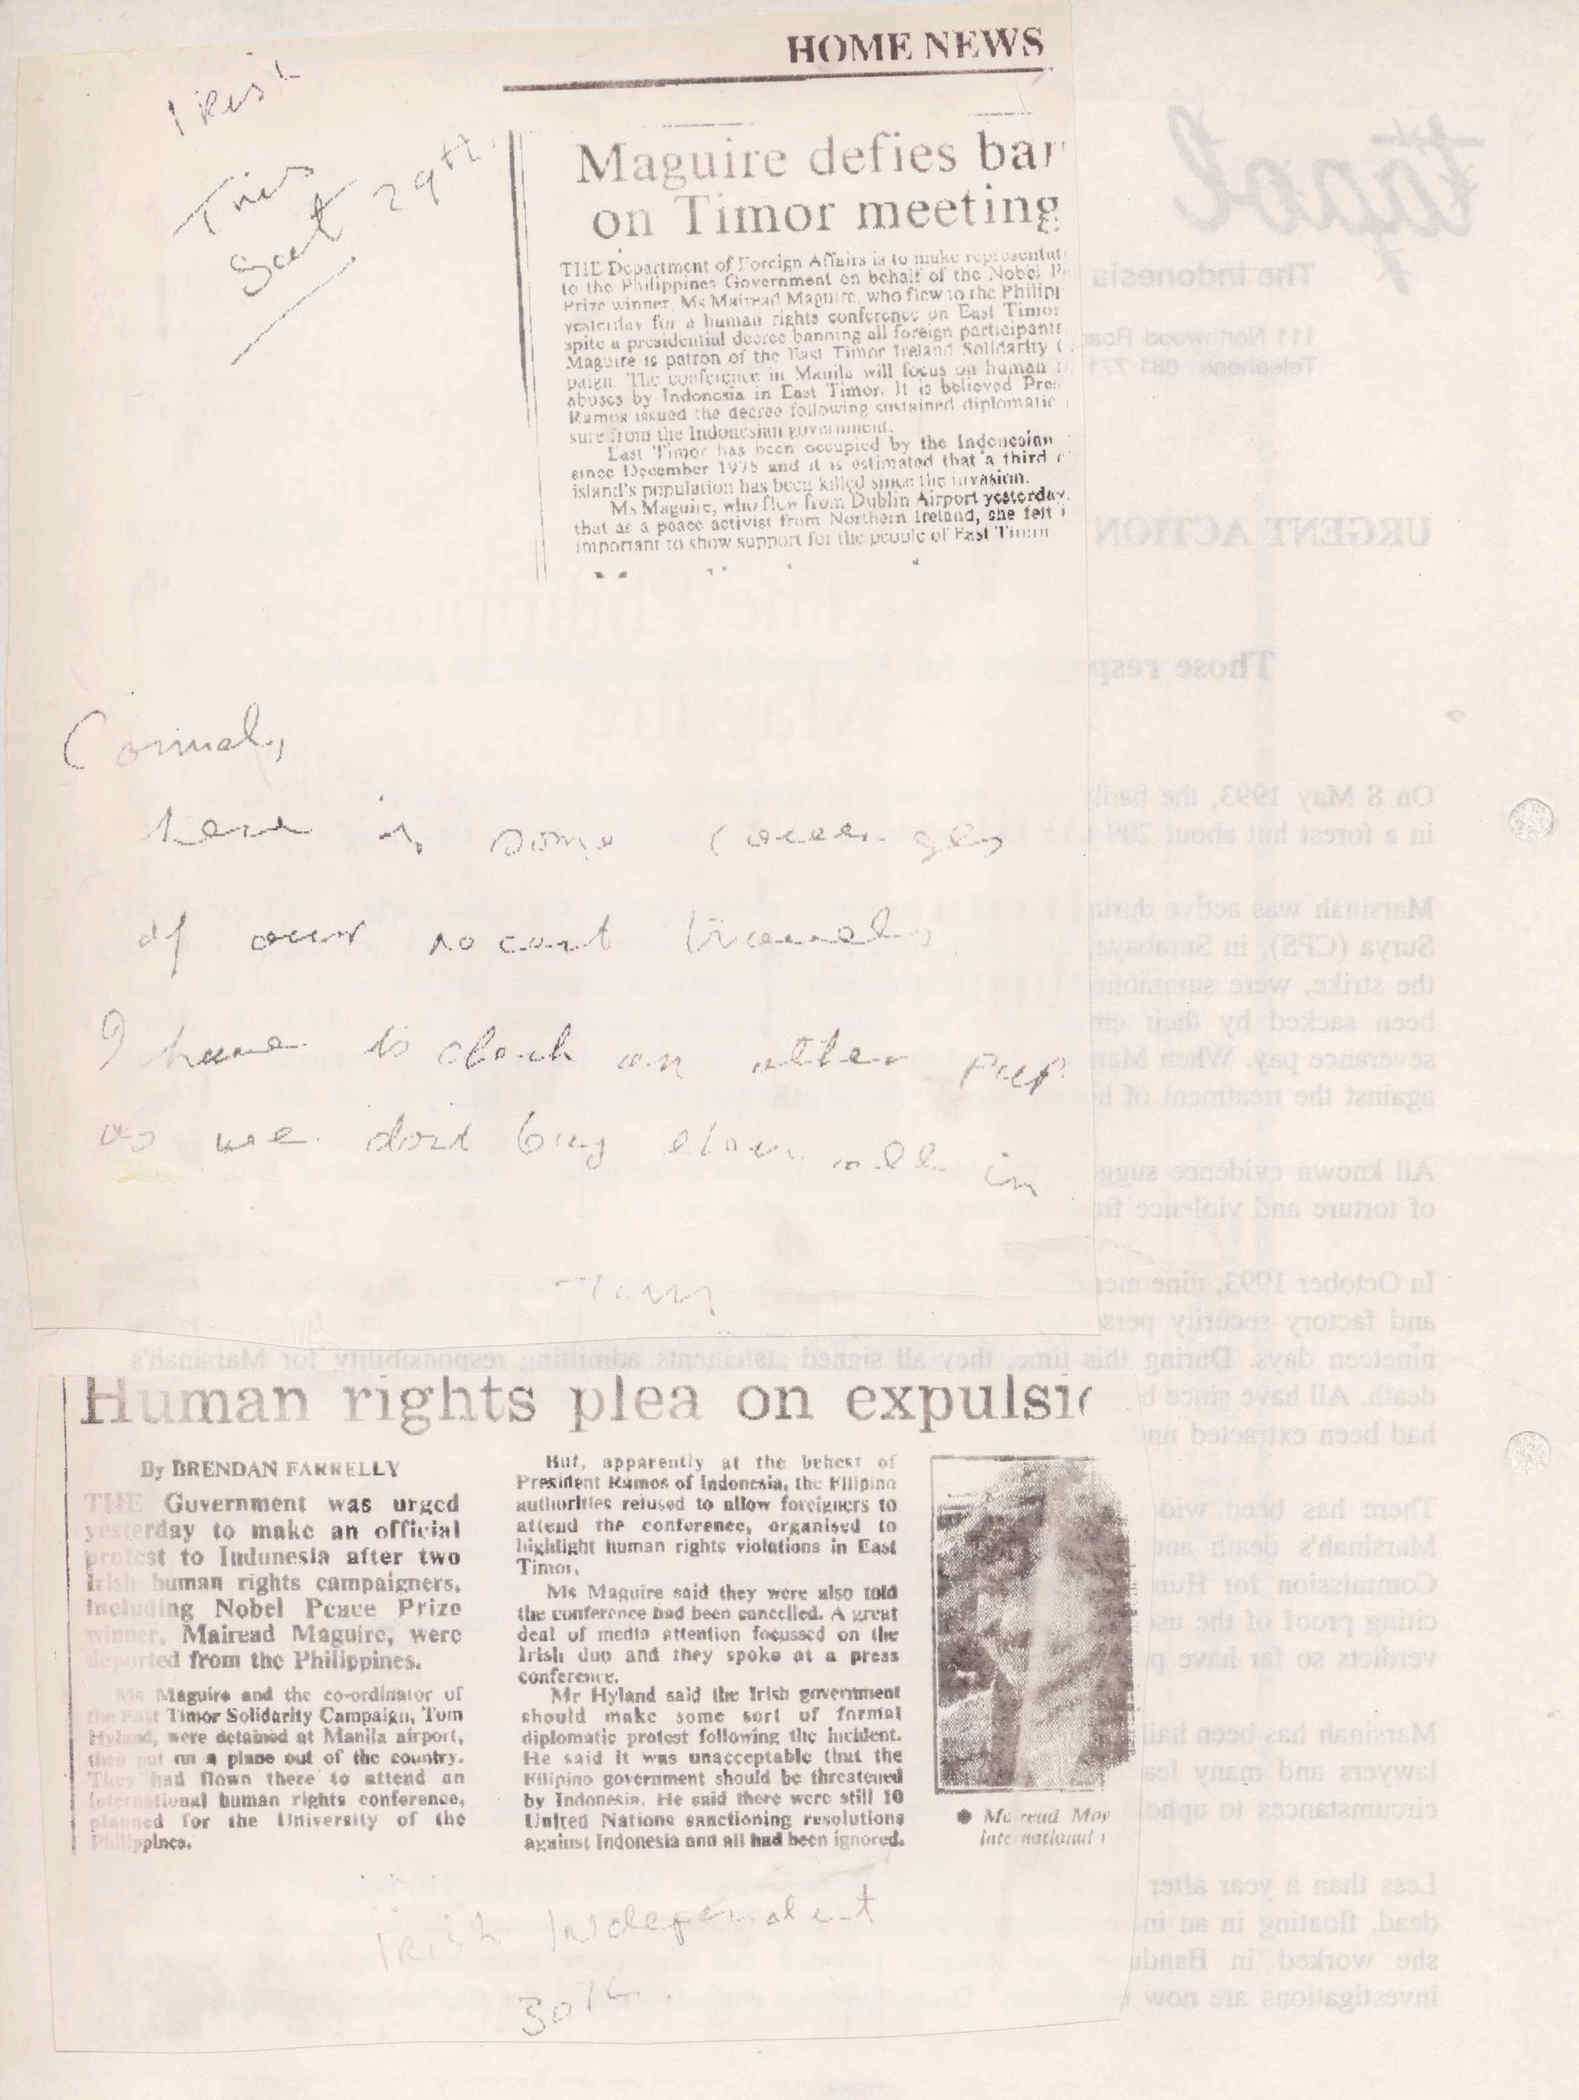 HOME NEWS
Irish
Times
29th.
Maguire defies ban
on Timor meeting
THE Department of Foreign Affairs is to make representat
to the Philippines Government on behalf of the Nobel P
Prize winner, Ms Mairead Maguire, who flew to the Philipp
yesterday for a human rights conference on East Timor
spite a presidential decree banning all foreign participants
Maguire is patron of the East Timor Ireland Solidarity C
paign. The conference in Manila will focus on human r
abuses by Indonesia in East Timor. It is believed Pres
Ramos issued the decree following sustained diplomatic
sure from the Indonesian government.
East Timor has been occupied by the Indonesian
since December 1975 and it is estimated that a third o
island's population has been killed since the invasion.
Ms Maguire, who flew from Dublin Airport yesterday,
that as a peace activist from Northern Ireland, she felt i
important to show support for the people of East Timor
Carmel,
here is some coverage
of our recent travels
I have to check on other pap
as we dont buy them all in
Tom
Human rights plea on expulsio
By BRENDAN FARRELLY
THE Government was urged
yesterday to make an official
protest to Indunesia after two
Irish human rights campaigners,
including Nobel Peace Prize
winner, Mairead Maguire, were
deported from the Philippines.
Ms Maguire and the co-ordinator of
the East Timor Solidarity Campaign, Tom
Hyland, were detained at Manila airport,
then put on a plane out of the country.
They had flown there to attend an
international human rights conference,
planned for the University of the
Philippines.
But, apparently at the behest of
President Ramos of Indonesia, the Filipino
authorities refused to allow foreigners to
attend the conference, organised to
highlight human rights violations in East
Timor.
Ms Maguire said they were also told
the conference had been cancelled. A great
deal of media attention focussed on the
Irish duo and they spoke at a press
conference.
Mr Hyland said the Irish government
should make some sort of formal
diplomatic protest following the incident.
He said it was unacceptable that the
Filipino government should be threatened
by Indonesia. He said there were still 10
United Nations sanctioning resolutions
against Indonesia and all had been ignored.
● Mairead
international
Irish Independent
30th.
tapol
The Indonesia
111 Northwood Road
Telephone 081 771
URGENT ACTION
Those resp
On 8 May 1993, the
in a forest hut about 200
Marsinah was active durin
Surya (CPS), in Surabaya,
the strike, were summon
been sacked by their em
severance pay. When Mar
against the treatment of he
All known evidence sugge
of torture and violence
In October 1993, nine mer
and factory security pers
nineteen days. During this time, they all signed statements admitting responsibility for Marsinah's
death. All have since b
had been extracted un
There has been wid
Marsinah's death and
Commission for Hum
citing proof of the use
verdicts so far have p
Marsinah has been hail
lawyers and many lea
circumstances to upho
Less than a year after
dead, floating in an
she worked in Bandu
investigations are now